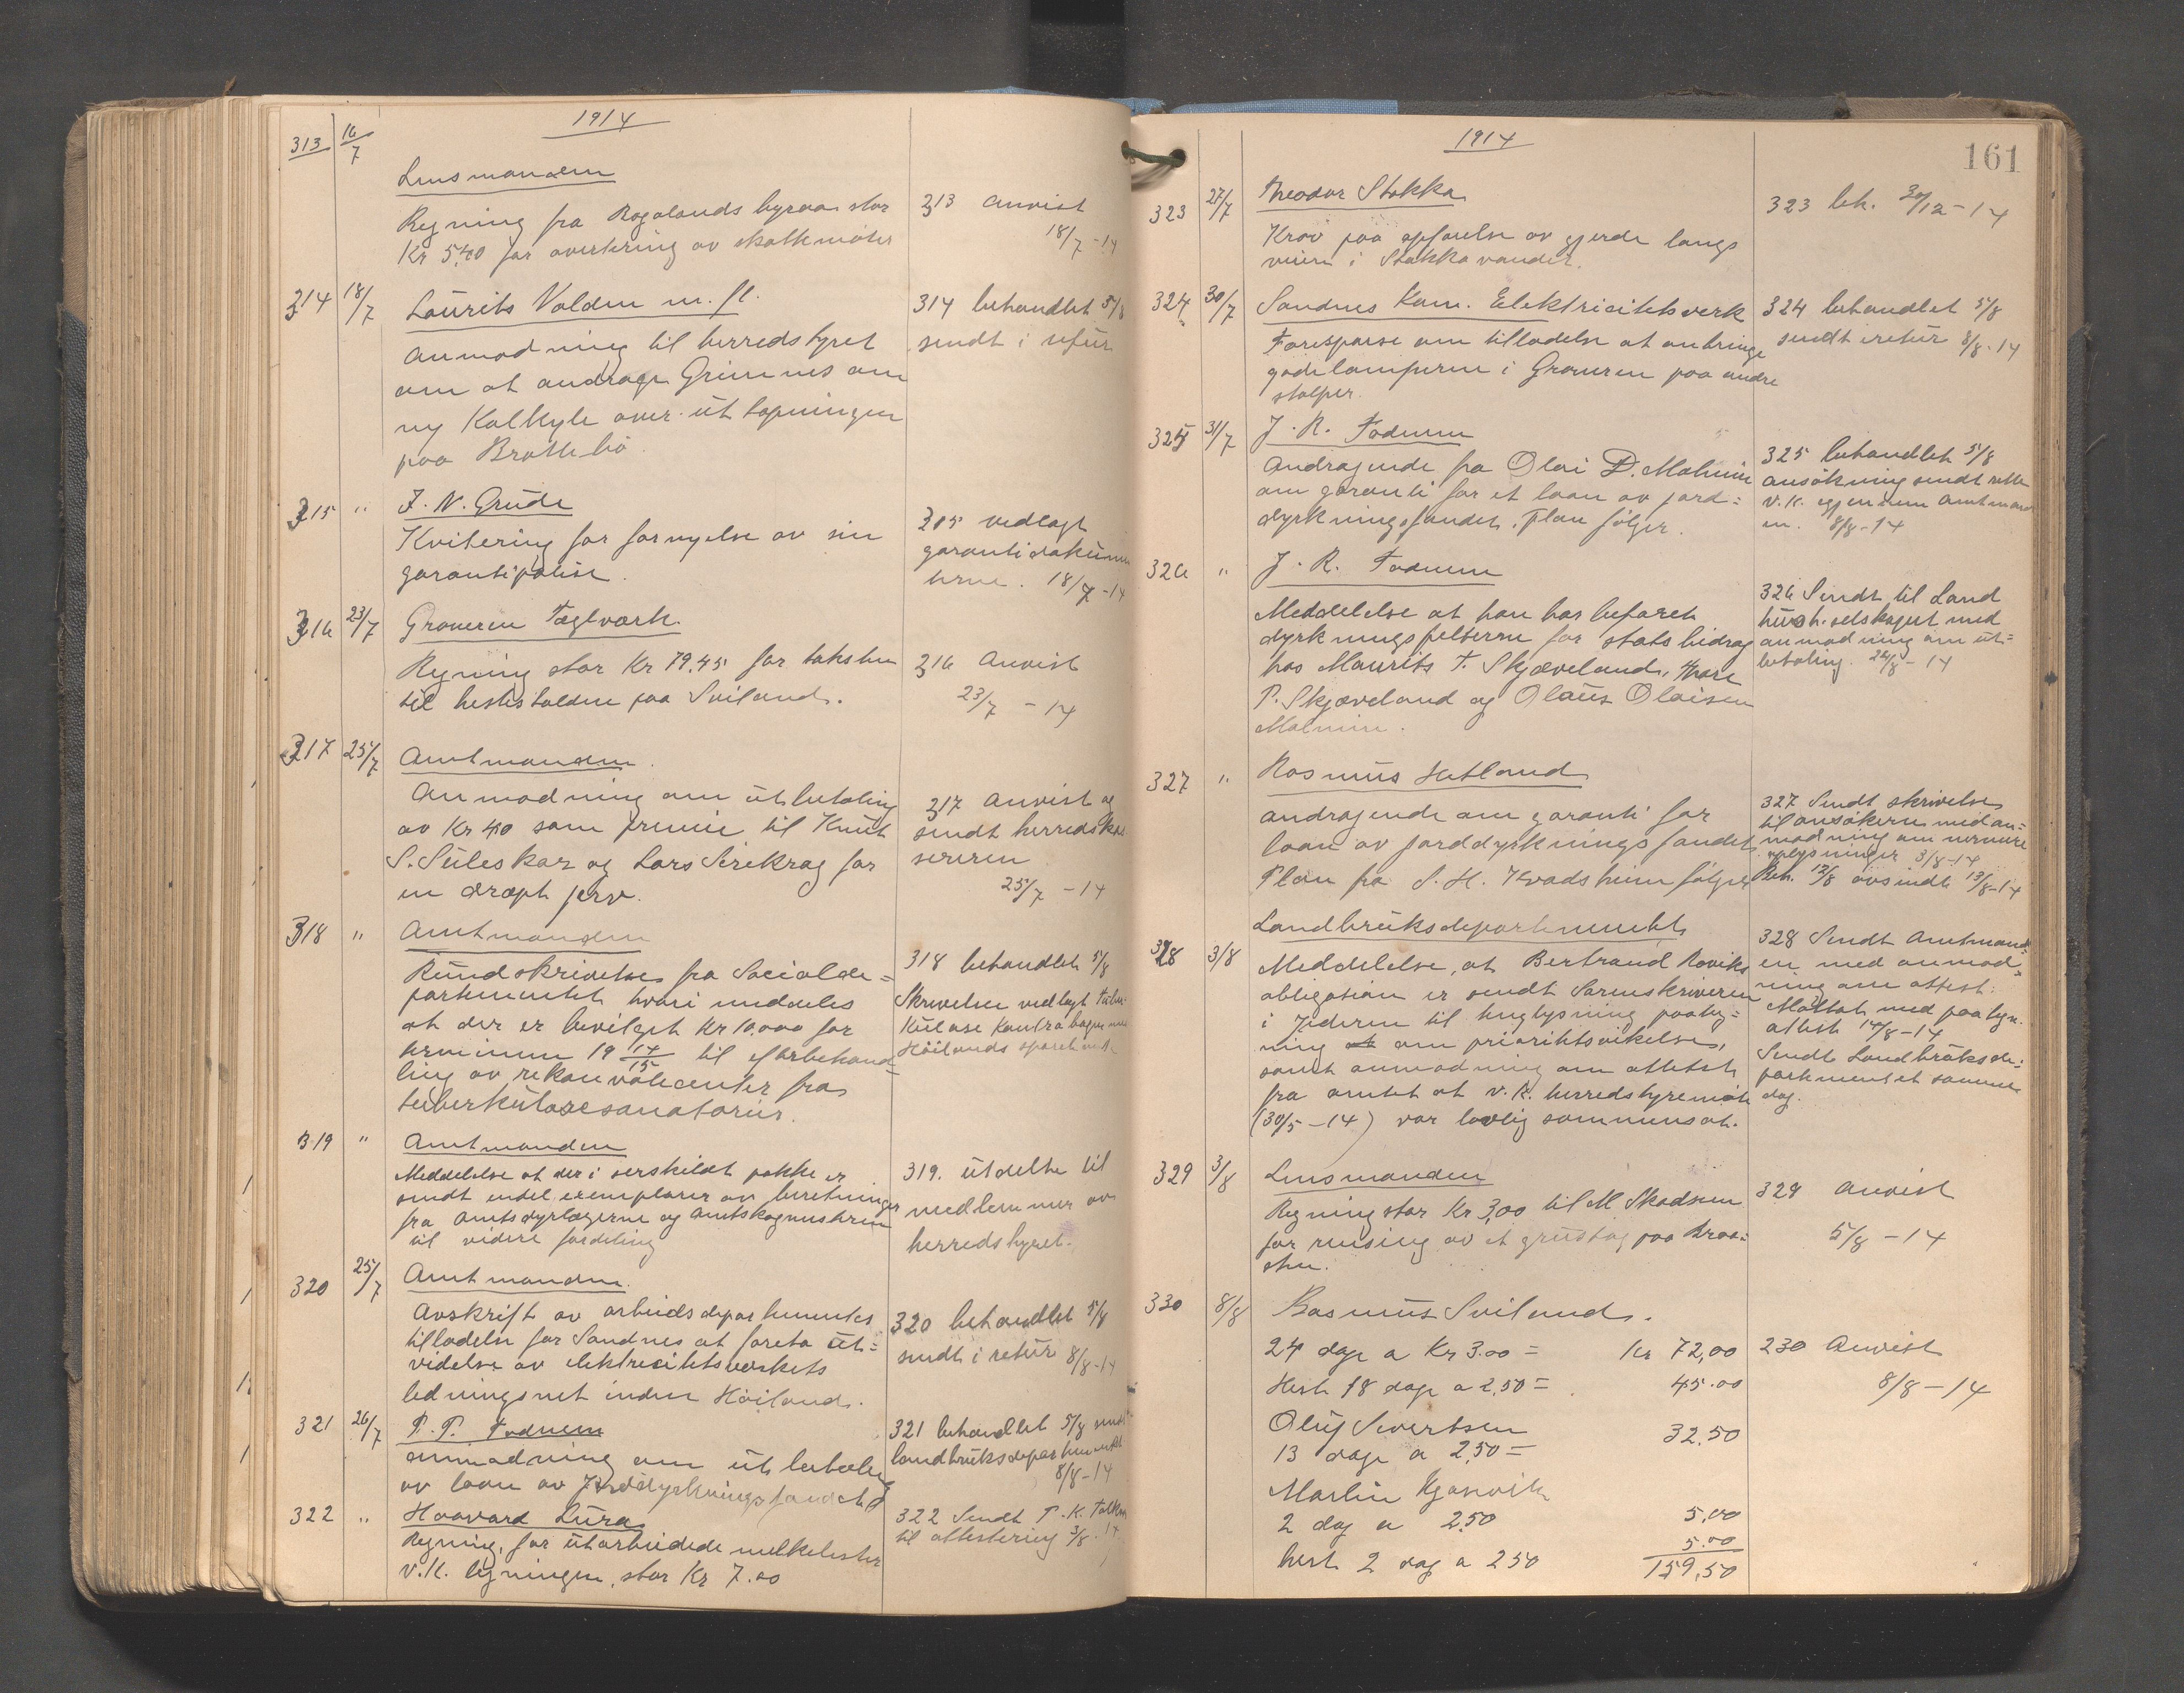 1914
313 16/7
Lensmanden
Regning fra Rogalands byraa stor
Kr 5,40 for avertering av skatkmøter
313 Anvist
18/7 -14
314 18/7 Laurits Volden m. fl.
Anmodning til herredstyret
om at andrage Grimnes om
ny Kalkyle over uttapningen
paa Brattebö.
314 behandlet 5/8
sendt i retur
315 " J. N. Grude
Kvitering for fornyelse av sin
garantipolise.
315 vedlagt
garantidokumen
terne. 18/7 -14
316 23/7 Graveren Teglverk.
Regning stor Kr 79.45 for taksten
til hestestalden paa Sviland.
316 Anvist
23/7 - 14
317 25/7 Amtmanden.
Anmodning om utbetaling
av Kr 40 som premie til Knut
S. Suleskar og Lars Sirekrag for
en dræpt jerv.
317 Anvist og
sendt herredskas
sereren
25/7 - 14
318 " Amtmanden
Rundskrivelse fra Socialde=
partementet hvori meddeles
at der er bevilget Kr 10.000 for
terminen 19 14/15 til efterbehand=
ling av rekonvalecenter fra
tuberkulosesanatorier.
318 behandlet 5/8
Skrivelsen vedlagt tuber
kulose
Höilands
319 " Amtmanden
Meddelelse at der i særskildt pakke er
sendt endel exemplarer av beretninger
fra Amtsdyrlægerne og
til videre fordeling
319. utdelte til
medlemmer av
herredstyret.
320 25/7 Amtmanden.
Avskrift av arbeidsdepartementes
tilladelse for Sandnes at foreta ut=
videlse av elektricitetsverkets
ledningsnet inden Höiland.
320 behandlet 5/8
sendt i retur 8/8-14
321 26/7 T. T. Fodnem
anmodning om utbetaling
av laan av Jorddyrkningsfondet
321 behandlet 5/8 sendt
landbruksdepartementet
8/8-14
322 " Haavard Lura
Regning, for utarbeidede melkelister
v.k. ligningen, stor Kr 7.00
322 Sendt T. K.
til attestering 3/8. 14
1914
161
323 27/7 Theodor Stokka
Krav paa opförelse av gjerde langs
veien i Stokkavandet.
323 beh. 30/12-14
324 30/7 Sandnes Kom. Elektricitetsverk
Forespørse om tilladelse at anbringe
gadelamperne i Graveren paa andre
stolper.
324 behandlet 5/8
sendt i retur 8/8-14
325 31/7 J. R. Fodnem
Andragende fra Olai D. Malmin
om garanti for et laan av jord=
dyrkningsfondet. Plan følger.
325 behandlet 5/8
ansökning sendt
v.k. Amtmand
en. 8/8-14
326 " J. R. Fodnem
Meddelelse at han har befaret
dyrkningsfelterne for statsbidrag
hos Maurits T. Skjæveland, Thore
P. Skjæveland og Olaus Olaisen
Malmin.
326 Sendt til Land
hush. selskapet med
anmodning om ut=
betaling. 22/8-14
327 " Rasmus Hetland
andragende om garanti for
laan av jorddyrkningsfondet
Plan fra S. H. Kvadsheim følger
327 Sendt skrivelse
til ansøkeren med an=
modning om nærmere
oplysninger 3/8-14
Beh. 12/8 avsendt 13/8-14
Landbruksdepartementet
328 3/8 Meddelelse, at Bertrand Roviks
obligation er sendt Sorenskriveren
i Jæderen til tinglysning paateg=
ning at om prioritetsvikelse,
samt anmodning om attest
fra amtet at v.k. herredstyremöte
(30/5-14) var lovlig sammensat.
328 Sendt Amtmand
en med anmod=
ning om attest.
Mottat med paategn.
attest 14/8-14
Sendt Landbruksde=
partementet samme
dag.
329 3/8 Lensmanden
Regning stor Kr 3,00 til M Skadsem
for rensing av et grustag paa Braa=
sten.
329 Anvist
5/8 - 14
330 8/8 Rasmus Sviland.
24 dage a Kr 3.00 = Kr 72,00
Hest 18 dage a 2,50 = 45.00
Oluf Sivertsen
13 dage a 2,50 = 32,50
Martin
2 dag a 2.50 5,00
hest 2 dag a 250 5.00
159,50
230 Anvist
8/8-14